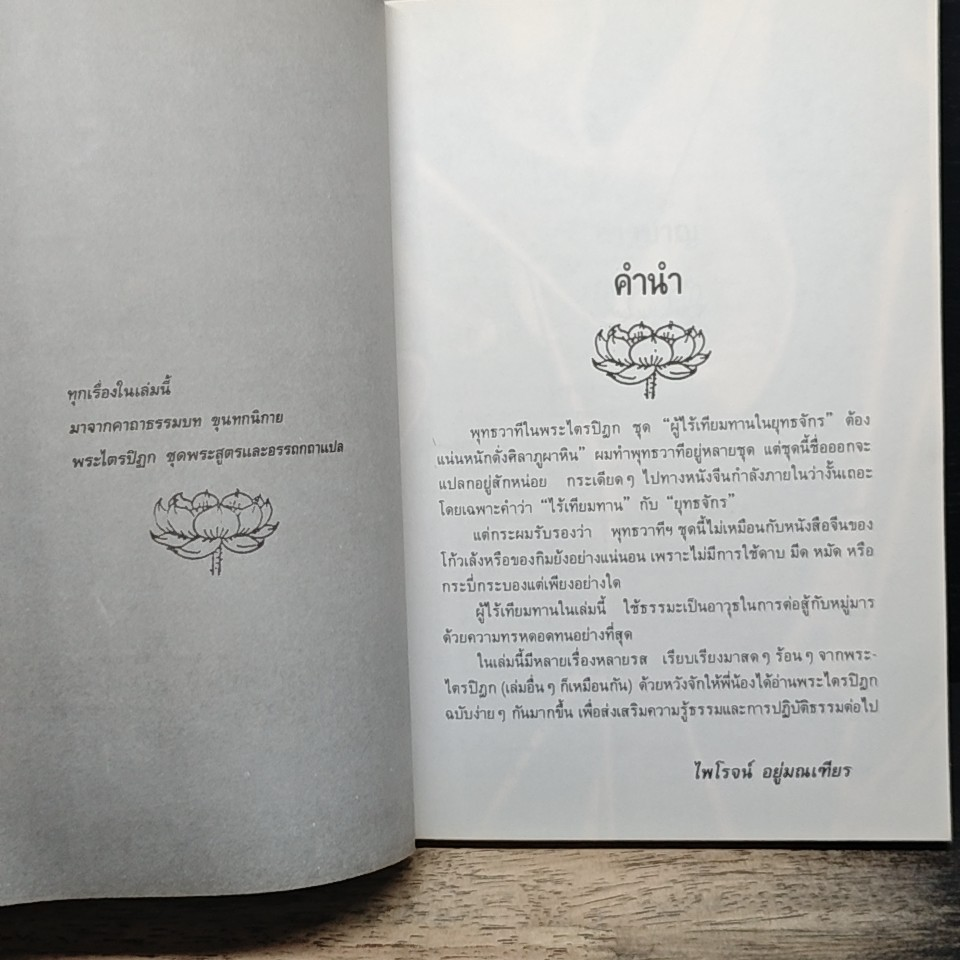 ทุกเรื่องในเล่มนี้
มาจากคาถาธรรมบท ขุนทกนิกาย
พระไตรปิฎก ชุดพระสูตรและอรรถกถาแปล
คำนำ
พุทธวาทีในพระไตรปิฎก ชุด “ผู้ไร้เทียมทานในยุทธจักร” ต้อง
แน่นหนักดั่งศิลาภูผาหิน” ผมทำพุทธวาทีอยู่หลายชุด แต่ชุดนี้ชื่อออกจะ
แปลกอยู่สักหน่อย กระเดียดๆ ไปทางหนังจีนกำลังภายในว่างั้นเถอะ
โดยเฉพาะคำว่า “ไร้เทียมทาน” กับ “ยุทธจักร”
แต่กระผมรับรองว่า พุทธวาทีฯ ชุดนี้ไม่เหมือนกับหนังสือจีนของ
โก้วเล้งหรือของกิมย้งอย่างแน่นอน เพราะไม่มีการใช้ดาบ มีด หมัด หรือ
กระบี่กระบองแต่เพียงอย่างใด
ผู้ไร้เทียมทานในเล่มนี้ ใช้ธรรมะเป็นอาวุธในการต่อสู้กับหมู่มาร
ด้วยความทรหดอดทนอย่างที่สุด
ในเล่มนี้มีหลายเรื่องหลายรส เรียบเรียงมาสดๆ ร้อนๆ จากพระ-
ไตรปิฎก (เล่มอื่นๆ ก็เหมือนกัน) ด้วยหวังจักให้พี่น้องได้อ่านพระไตรปิฎก
ฉบับง่ายๆ กันมากขึ้น เพื่อส่งเสริมความรู้ธรรมและการปฏิบัติธรรมต่อไป
ไพโรจน์ อยู่มณเฑียร